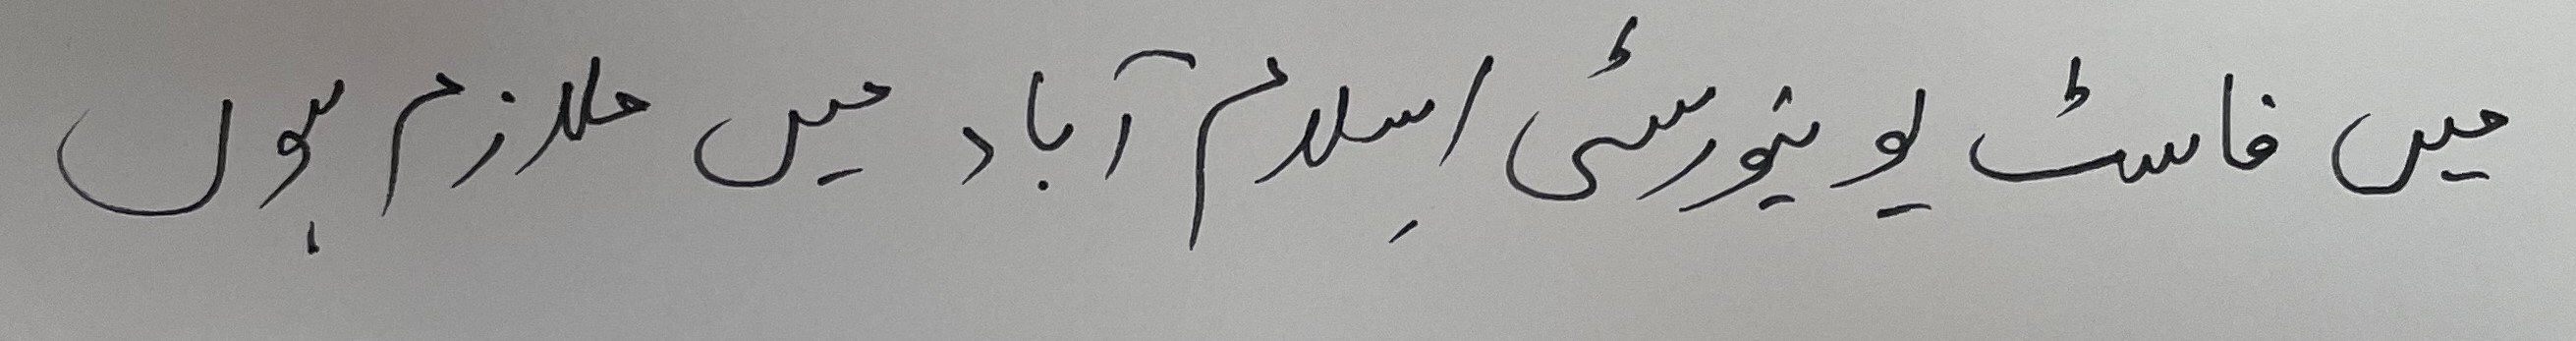 میں فاسٹ یونیورسٹی اسِلام آباد میں ملازم ہوں